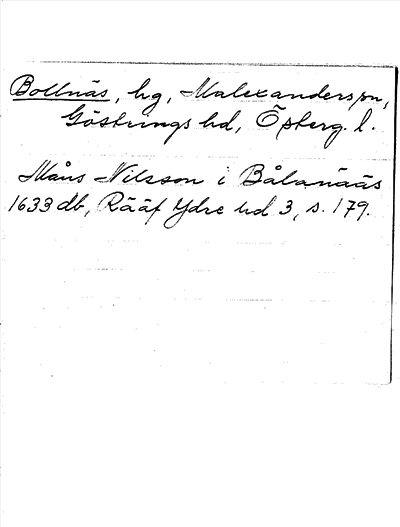 Bollnäs, hg, Malexanders sn,
Göstrings hd, Österg. l.
Måns Nilsson i Bålanääs
1633 db, Rääf Ydre hd 3, s. 179.